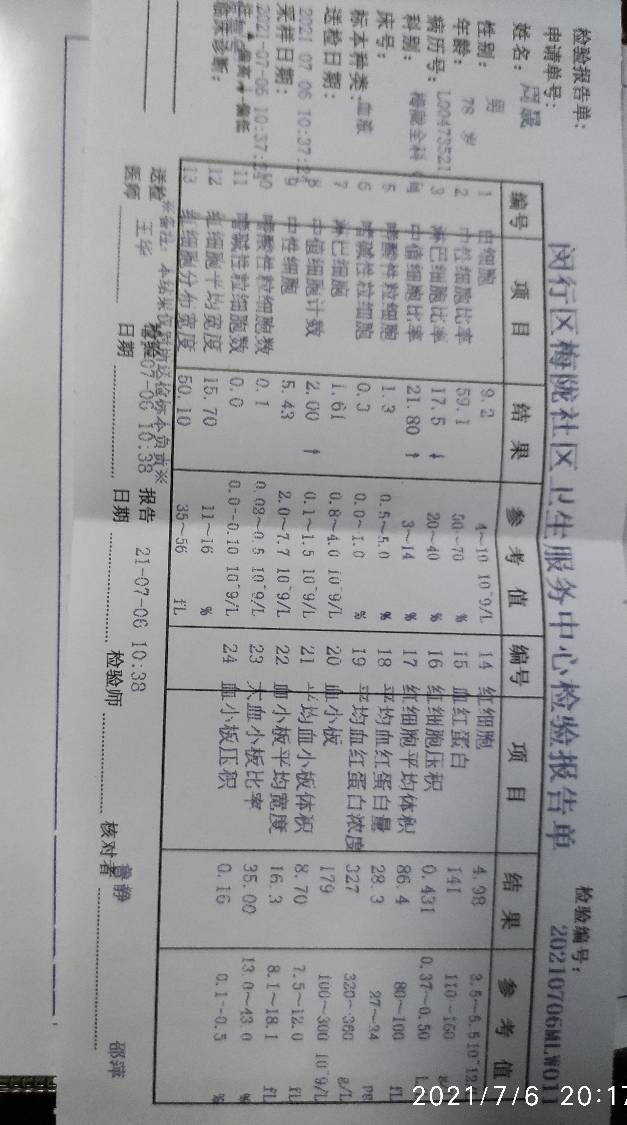 闵行区梅陇社区卫生服务中心检验报告单
检验报告单:
检验编号:
20210706MLW011
申请单号:
姓名:
性别: 男
年龄: 78 岁
病历号: L00473521
科别: 梅陇全科
床号:
标本种类: 血液
送检日期:
2021 07 06 10:37:
采样日期:
2021-07-06 10:37:
临床诊断:
编号 项目 结果 参考值 编号 项目 结果 参考值
1 白细胞 9.2 4~10 10^9/L 14 红细胞 4.98 3.5~5.5 10^12
2 中性细胞比率 59.1 50--70 % 15 血红蛋白 141 110--160
3 淋巴细胞比率 17.5 ↓ 20~40 % 16 红细胞压积 0.431 0.37~0.50
4 中值细胞比率 21.80 ↑ 3~14 % 17 红细胞平均体积 86.4 80~100 fL
5 嗜酸性粒细胞 1.3 0.5~5.0 % 18 平均血红蛋白量 28.3 27~34 pg
6 嗜碱性粒细胞 0.3 0.0~1.0 % 19 平均血红蛋白浓度 327 320~360 g/L
7 淋巴细胞 1.61 0.8~4.0 10^9/L 20 血小板 179 100~300 10^9/L
8 中值细胞计数 2.00 ↑ 0.1~1.5 10^9/L 21 平均血小板体积 8.70 7.5~12.0 fL
9 中性细胞 5.43 2.0~7.7 10^9/L 22 血小板平均宽度 16.3 8.1~18.1 fL
10 嗜酸性粒细胞数 0.1 0.02~0.5 10^9/L 23 大血小板比率 35.00 13.0~43.0 %
11 嗜碱性粒细胞数 0.0 0.0--0.10 10^9/L 24 血小板压积 0.16 0.1--0.5 %
12 红细胞平均宽度 15.70 11~16 %
13 红细胞分布宽度 50.10 35~56 fL
※备注: 本结果仅对所送检标本负责※
送检医师 王华 检验日期 07-06 10:38 报告日期 21-07-06 10:38 检验师 核对者 鲁静 邵萍
2021/7/6 20:17